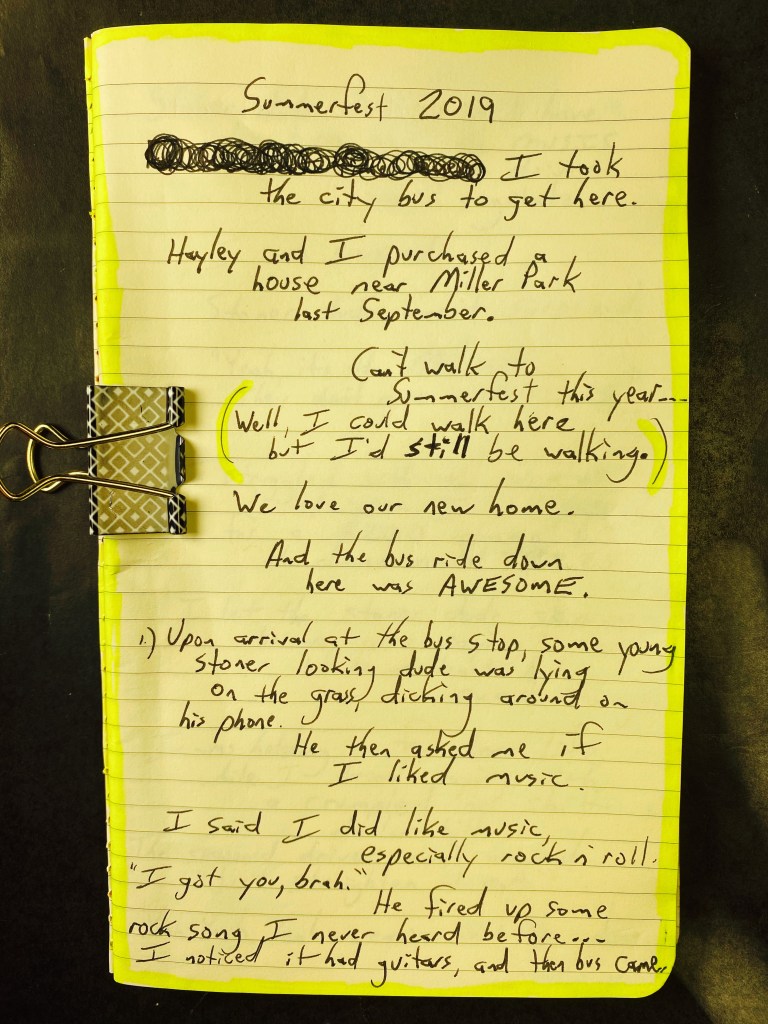 Summerfest 2019
I took
the city bus to get here.
Hayley and I purchased a
house near Miller Park
last September.
Can't walk to
Summerfest this year---
(Well, I could walk here
but I'd still be walking.)
We love our new home.
And the bus ride down
here was AWESOME.
1.) Upon arrival at the bus stop, some young
stoner looking dude was lying
on the grass, dicking around on
his phone.
He then asked me if
I liked music.
I said I did like music,
especially rock n' roll.
"I got you, brah."
He fired up some
rock song I never heard before...
I noticed it had guitars, and then bus came.